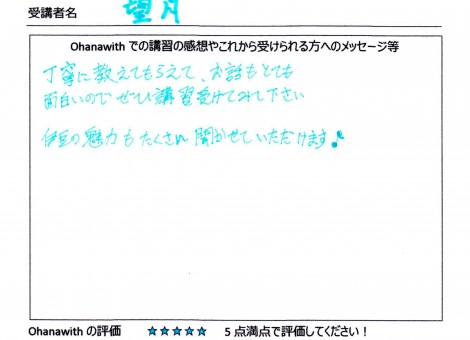 受講者名 望月
Ohanawith での講習の感想やこれから受けられる方へのメッセージ等
丁寧に教えてもらえて、お話もとても
面白いので ぜひ講習受けてみて下さい
伊豆の魅力も たくさん 聞かせていただけます♪
Ohanawith の評価 ★★★★★ 5 点満点で評価してください！